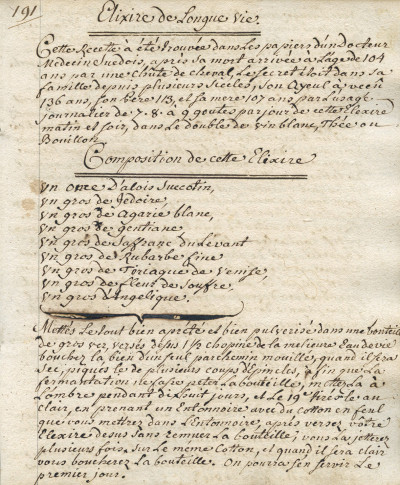 191
Elixire de Longue Vie.
Cette Recete à été trouvée dans Les papiers d'un Docteur
Medecin Suedois, apris sa mort arrivée a L'age de 104
ans par une Chute de Cheval, Le Secret étoit dans sa
famille depuis plusieurs Siecles, Son Ayeul à vécu
136 ans, Son Pere 113, et sa mere 107 ans par L'usage
journalier de 7. 8. à 9 goutes par jour de cette Elexire
matin et soir, dans Le double de vin blanc, Thée ou
Bouillon.
Composition de cette Elixire
Un once D'alois Succotin,
Un gros de Jedoire,
Un gros de Agaric blanc,
Un gros de gentiane,
Un gros de Saffranc du Levant
Un gros de Rubarbe fine
Un gros de Teriaque de Venise,
Un gros de fleur de Souffre,
Un gros D'Angelique.
Mettés Le tout bien apreté et bien pulverisé dans une bouteille
de gros ver, versés depus 1 1/2 chopine de la melieure Eau de vie
bouchez la bien d'un seul parchemin mouillé, quand il sera
Sec, piqués le de plusieurs coups d'Epincles, afin que La
fermantation ne fasse peter La bouteille, mettez La à
L'ombre pendant dixhuit jours, et Le 19e tirés le au
clair, en prenant un Entonnoire avec du cotton en feul
que vous mettrez dans L'Entonnoire, apres versez vôtre
Elexire desus Sans remuer La bouteille; vous La jetterez
plusieurs fois Sur Le même Cotton, et quand il sera clair
vous boucherez La bouteille. On pourra s'en servir Le
premier jour.